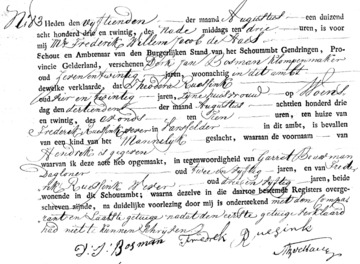 N: 83 Heden den vyftienden der maand Augustus een duizend
acht honderd drie en twintig, des namiddags ten drie uren, is voor
mij Mr. Frederik Willem
Schout en Ambtenaar van den Burgerlijken Stand van het Schoutambt Gendringen, Pro-
vincie Gelderland, verschenen Derk Jan Bosman Klompenmaker
oud zeven en twintig jaren, woonachtig in dit ambt
dewelke verklaarde, dat Theodora Ruesink
oud vier en twintig jaren, zyne huisvrouw op Woens
dag den dertienden der maand Augustus achtien honderd drie
en twintig, des avonds ten tien uren, ten huize van
Frederik Ruesink wever in in dit ambt, is bevallen
van een kind van het Mannelyk geslacht, waaraan de voornaam van
Hendrik is gegeven
waarvan ik deze acte heb opgemaakt, in tegenwoordigheid van Garrit Buesman
Dagloner oud twee en vyftig jaren, en van Frede
rik Ruesink Wever oud vyftig jaren, beide
wonende in dit Schoutambt; waarna dezelve in de daartoe bestemde Registers overge-
schreven zijnde, na duidelijke voorlezing door mij is onderteekend met den Compa
rant en Laatste getuige nadat den eerste getuige verklaard
had niet te kunnen schryven
D: J: Bosman Fredrik Ruesink